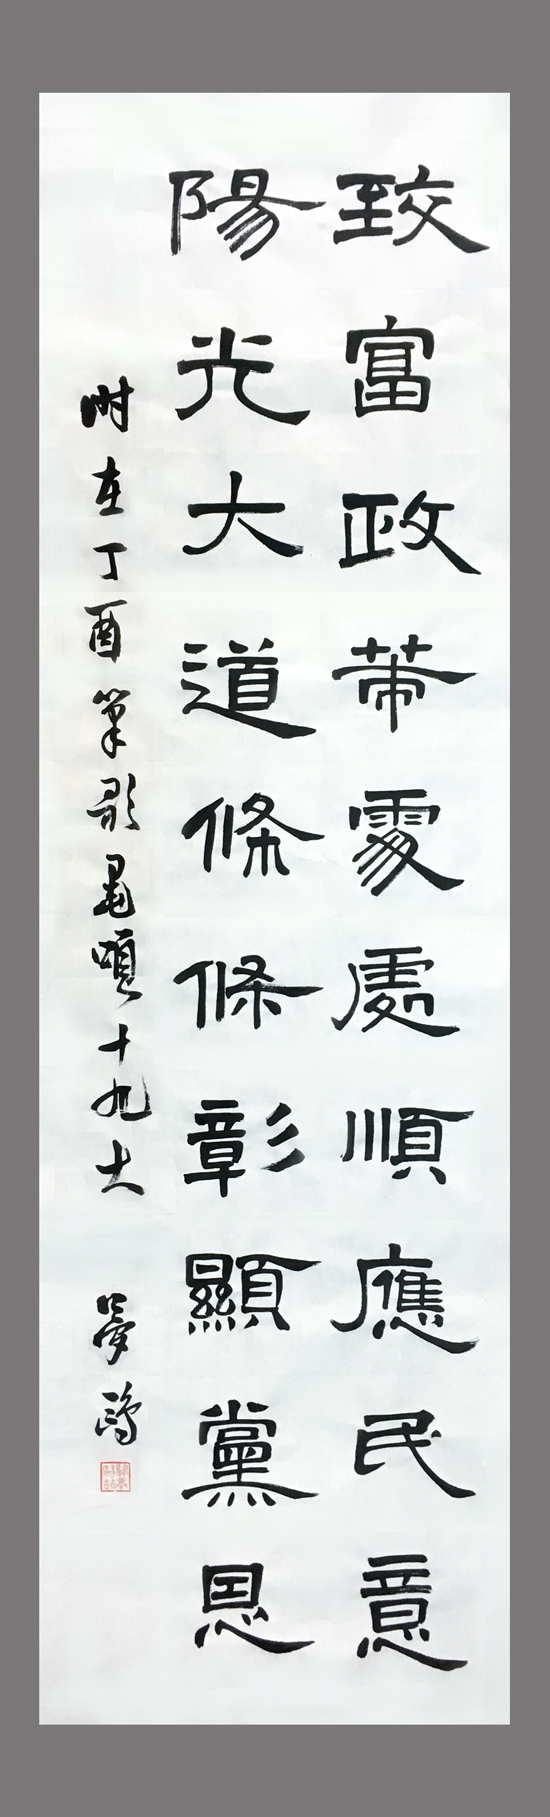 致富政策處處順應民意
陽光大道條條彰顯黨恩
时在丁酉筆歌墨頌十九大